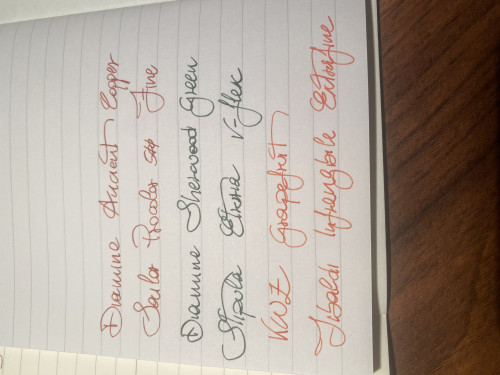 Diamine Ancient Copper
Sailor Procolor 500 Fine
Diamine Sherwood Green
Stipula Etruria V-flex
KWZ Grapefruit
Tibaldi Infrangibile Extrafine